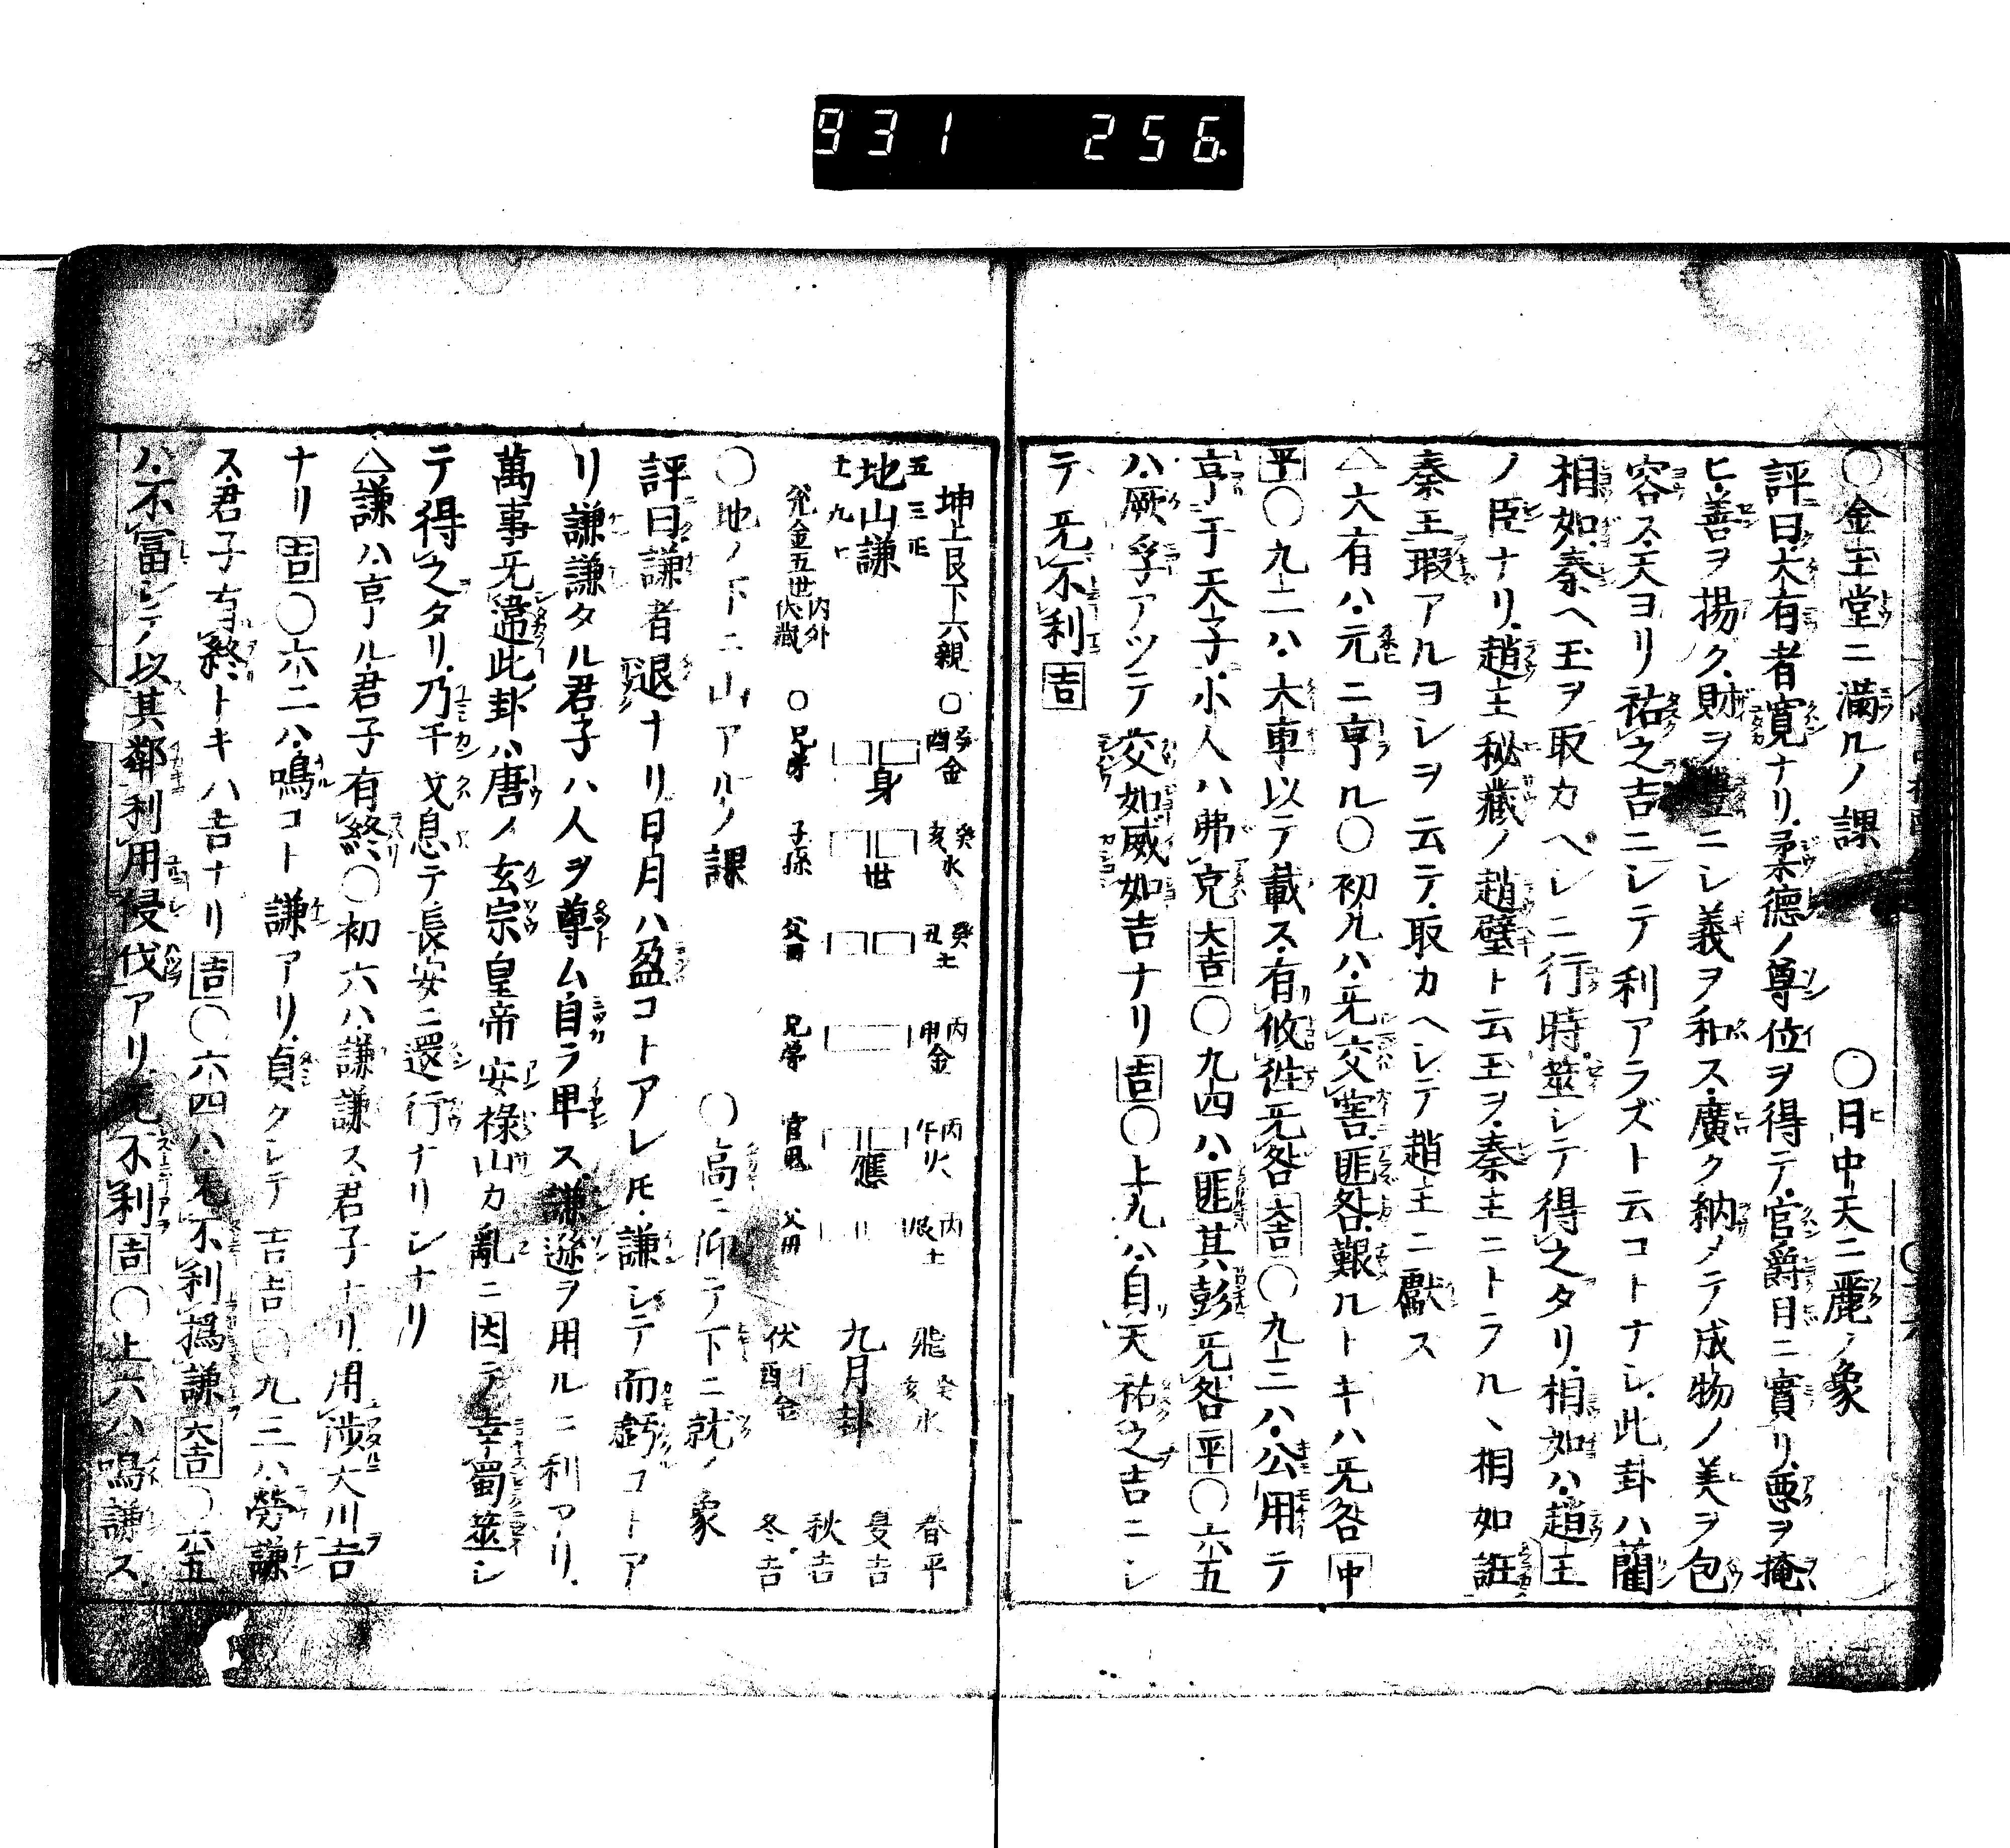 931 256
○金玉堂ニ満ルノ課 ○日中天ニ麗ノ象
評曰大有者寛ナリ柔德ノ尊位ヲ得テ官爵日ニ實リ悪ヲ掩
ヒ善ヲ揚ク財ヲ豊ニシ義ヲ和ス廣ク納メテ成物ノ美ヲ包
容ス天ヨリ祐之吉ニシテ利アラズト云コトナシ此卦ハ藺
相如秦ヘ玉ヲ取カベシニ行時筮シテ得之タリ相如ハ趙王
ノ臣ナリ趙主秘藏ノ趙璧ト云玉ヲ秦主ニトラル、相如誑
秦王瑕アルヨシヲ云テ取カヘシテ趙主ニ獻ス
△大有ハ元ニ亨ル○初九ハ无交害匪咎艱ルトキハ无咎中
平○九二ハ大車以テ載ス有攸徃无咎大吉○九三ハ公用テ
亨于天子小人ハ弗克大吉○九四ハ匪其彭无咎平○六五
ハ厥孚アツテ交如威如吉ナリ吉○上九ハ自天祐之吉ニシ
テ无不利吉
坤上艮下六親○
癸酉金 癸亥水 癸丑土 丙申金 丙午火 丙辰土
五 三 正
地山謙
十一 九 七
身 世 應
兌金五世内外伏藏○兄弟 子孫 父母 兄弟 官鬼 父母
飛 癸亥水 九月卦 伏 丁酉金
春平 夏吉 秋吉 冬吉
○地ノ下ニ山アルノ課 ○高ニ仰テ下ニ就ノ象
評曰謙者退ナリ日月ハ盈コトアレ𪜈謙シテ而虧コトア
リ謙謙タル君子ハ人ヲ尊ム自ラ卑ス謙遜ヲ用ルニ利アリ
萬事无違此卦ハ唐ノ玄宗皇帝安禄山カ亂ニ因テ幸蜀筮シ
テ得之タリ乃干戈息テ長安ニ還行ナリシナリ
△謙ハ亨ル君子有終○初六ハ謙謙ス君子ナリ用渉大川吉
ナリ吉○六二ハ鳴コト謙アリ貞クシテ吉吉○九三ハ勞謙
ス君子有終トキハ吉ナリ吉○六四ハ无不利撝謙大吉○六五
ハ不富シテ以其鄰利用侵伐アリ无不利吉○上六ハ鳴謙ス